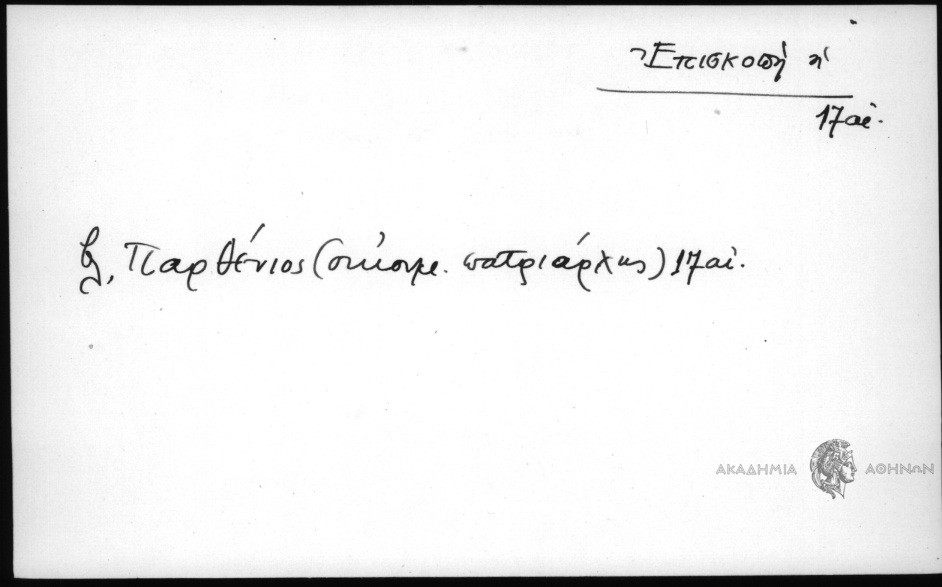 Ἐπισκοπή ἡ
17 αἰ.
βλ. Παρθένιος (οἰκουμ. πατριάρχης) 17 αἰ.
ΑΚΑΔΗΜΙΑ ΑΘΗΝΩΝ